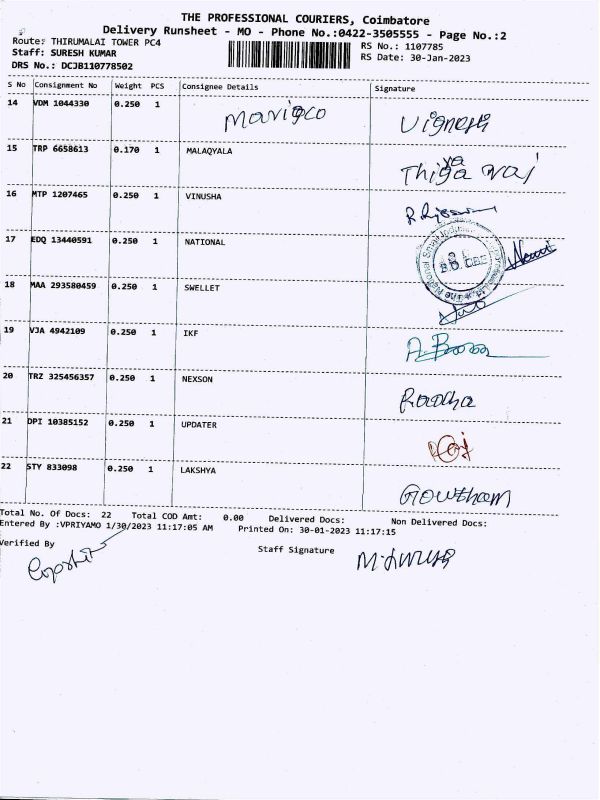 THE PROFESSIONAL COURIERS, Coimbatore
Delivery Runsheet - MO - Phone No.:0422-3505555 - Page No.:2
Route: THIRUMALAI TOWER PC4 RS No.: 1107785
Staff: SURESH KUMAR RS Date: 30-Jan-2023
DRS No.: DCJB110778502
S No Consignment No Weight PCS Consignee Details Signature
14 VDM 1044330 0.250 1 Vignesh
15 TRP 6658613 0.170 1 MALAQYALA
16 MTP 1207465 0.250 1 VINUSHA
17 EDQ 13440591 0.250 1 NATIONAL
18 MAA 293580459 0.250 1 SWELLET
19 VJA 4942109 0.250 1 IKF
20 TRZ 325456357 0.250 1 NEXSON Radha
21 DPI 10385152 0.250 1 UPDATER Raj
22 STY 833098 0.250 1 LAKSHYA Gowtham
Total No. Of Docs: 22 Total COD Amt: 0.00 Delivered Docs: Non Delivered Docs:
Entered By :VPRIYAMO 1/30/2023 11:17:05 AM Printed On: 30-01-2023 11:17:15
Verified By Staff Signature